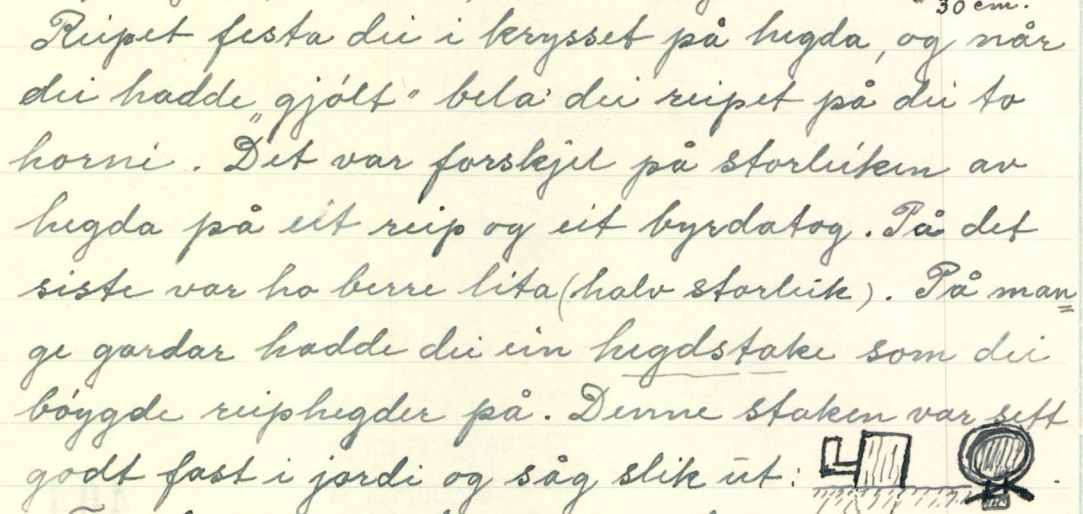 30 cm.
Reipet festa dei i krysset på hegda, og når
dei hadde „gjólt" bela dei reipet på dei to
horni. Det var forskjel på storleiken av
hegda på eit reip og eit byrdatog. På det
siste var ho berre lita (halv storleik). På man=
ge gardar hadde dei ein hegdstake som dei
bóygde reiphegder på. Denne staken var sett
godt fast i jordi og såg slik ut: